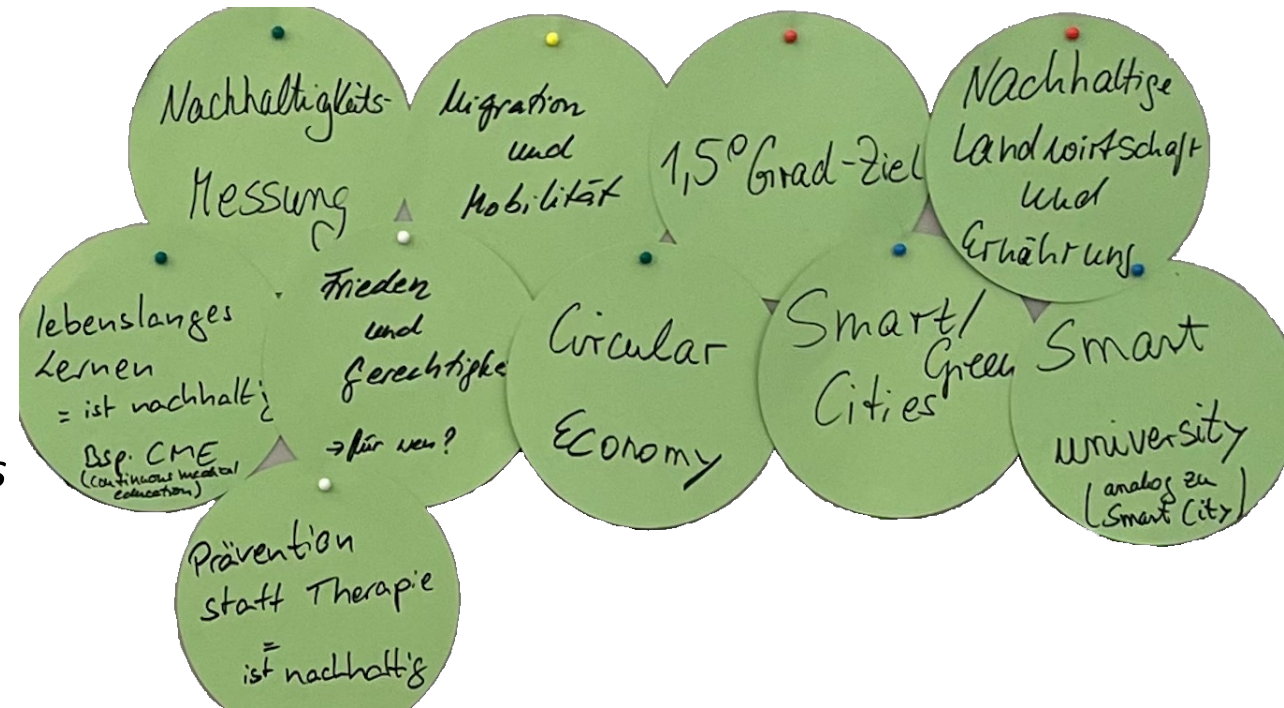 Nachhaltigkeits-
Messung
Migration
und
Mobilität
1,5° Grad-Ziel
Nachhaltige
Landwirtschaft
und
Ernährung
lebenslanges
Lernen
= ist nachhaltig
Bsp. CME
(continuous medical
education)
Frieden
und
Gerechtigke
→ für wen?
Circular
Economy
Smart/
Green
Cities
Smart
university
(analog zu
Smart City)
Prävention
statt Therapie
=
ist nachhaltig
s